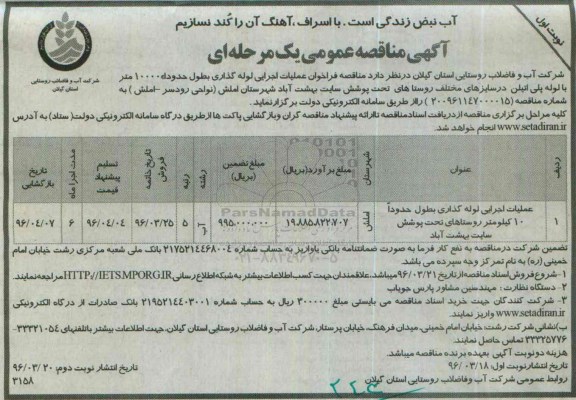 نوبت اول
آب نبض زندگی است ، با اسراف ،آهنگ آن را کُند نسازیم
آگهی مناقصه عمومی یک مرحله ای
شرکت آب و فاضلاب روستایی
استان گیلان
شرکت آب و فاضلاب روستایی استان گیلان درنظر دارد مناقصه فراخوان عملیات اجرایی لوله گذاری بطول حدودا ۱۰۰۰۰ متر
با لوله پلی اتیلن درسایزهای مختلف روستا های تحت پوشش سایت بهشت آباد شهرستان املش (نواحی رودسر –املش ) به
شماره مناقصه (۲۰۰۹۶۱۱۴۷۰۰۰۰۱۵ ) رااز طریق سامانه الکترونیکی دولت برگزارنماید.
کلیه مراحل برگزاری مناقصه ازدریافت اسنادمناقصه تاارائه پیشنهاد مناقصه گران وبازگشایی پاکت ها ازطریق درگاه سامانه الکترونیکی دولت( ستاد) به آدرس
www.setadiran.ir انجام خواهد شد.
ردیف عنوان شهرستان مبلغ برآورد(بریال) مبلغ تضمین (بریال) رشته رتبه تاریخ خاتمه فروش تسلیم پیشنهاد قیمت مدت اجرا ماه تاریخ بازگشایی
۱ عملیات اجرایی لوله گذاری بطول حدوداً ۱۰ کیلومتر روستاهای تحت پوشش سایت بهشت آباد املش ۱۹،۸۸۵،۸۲۲،۷۰۷ ۹۹۵،۰۰۰،۰۰۰ آب ۵ ۹۶/۰۳/۲۵ ۹۶/۰۴/۰۴ ۶ ۹۶/۰۴/۰۷
ParsNamadData
تضمین شرکت درمناقصه به نفع کار فرما به صورت ضمانتنامه بانکی یاواریز به حساب شماره ۲۱۷۵۲۱۴۴۶۸۰۰۴ بانک ملی شعبه مرکزی رشت خیابان امام
خمینی (ره) به نام تمرکز وجه سپرده می باشد.
۱-شروع فروش اسناد مناقصه ازتاریخ ۹۶/۰۳/۲۱ میباشد.علاقمندان جهت کسب اطلاعات بیشتر به شبکه اطلاع رسانی HTTP://IETS.MPORG.IR مراجعه نمایند.
۲- دستگاه نظارت : مهندسین مشاور پارس جویاب
۳- شرکت کنندگان جهت خرید اسناد مناقصه می بایستی مبلغ ۳۰۰۰۰۰ ریال به حساب شماره ۲۱۹۵۲۱۴۴۰۳۰۰۱ بانک صادرات از درگاه الکترونیکی
www.setadiran.ir واریز نمایند.
ب)نشانی شرکت رشت خیابان امام خمینی، میدان فرهنگ، خیابان پرستار، شرکت آب و فاضلاب روستایی استان گیلان، جهت اطلاعات بیشتر باتلفنهای ۳۳۳۲۱۰۵۴-
۳۳۳۲۵۷۷۶ تماس حاصل نمایند.
هزینه دونوبت آگهی بعهده برنده مناقصه میباشد.
تاریخ انتشار نوبت اول: ۹۶/۰۳/۱۸ تاریخ انتشار نوبت دوم: ۹۶/۰۳/۲۰
روابط عمومی شرکت آب وفاضلاب روستایی استان گیلان ۳۱۵۸